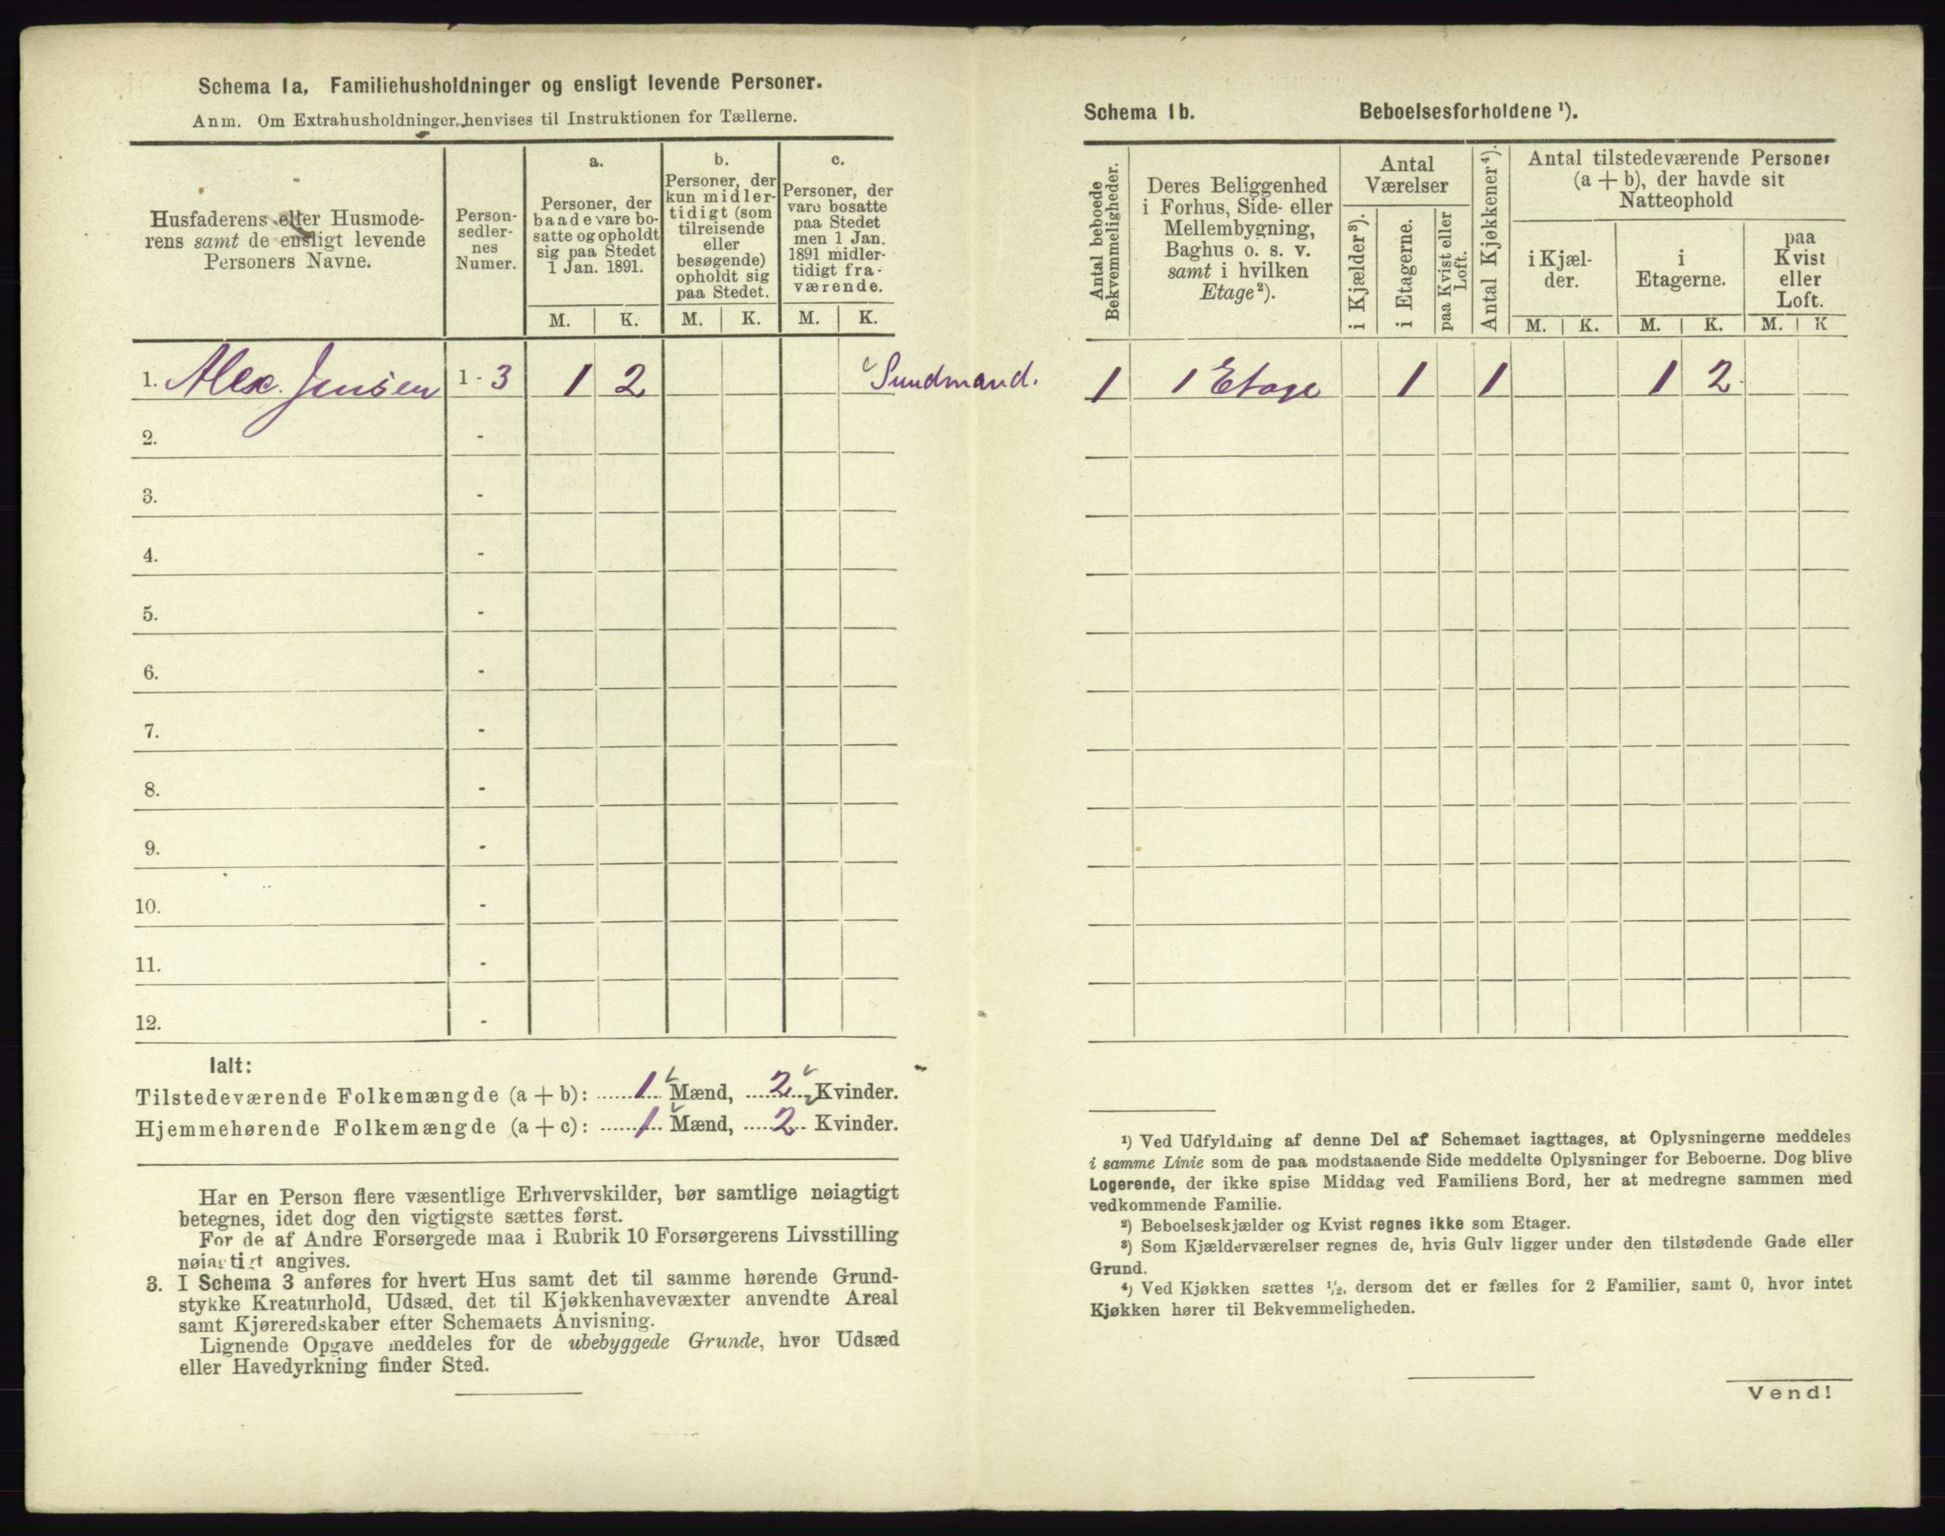 Schema 1a. Familiehusholdninger og ensligt levende Personer.
Anm. Om Extrahusholdninger henvises til Instruktionen for Tællerne.
Husfaderens eller Husmode-
rens samt de ensligt levende
Personers Navne.
Person-
sedler-
nes
Numer.
a.
Personer, der
baade vare bo-
satte og opholdt
sig paa Stedet
1 Jan. 1891.
b.
Personer, der
kun midler-
tidigt (som
tilreisende
eller
besøgende)
opholdt sig
paa Stedet.
c.
Personer, der
vare bosatte
paa Stedet
men 1 Jan.
1891 midler-
tidigt fra-
værende.
M. K. M. K. M. K.
1. Alex. Jensen 1 - 3 1 2 Sundmand.
2. -
3. -
4. -
5. -
6. -
7. -
8. -
9. -
10. -
11. -
12. -
Ialt:
Tilstedeværende Folkemængde (a + b): 1 Mænd, 2 Kvinder.
Hjemmehørende Folkemængde (a + c): 1 Mænd, 2 Kvinder.
Har en Person flere væsentlige Erhvervskilder, bør samtlige nøiagtigt
betegnes, idet dog den vigtigste sættes først.
For de af Andre Forsørgede maa i Rubrik 10 Forsørgerens Livsstilling
nøiagtigt angives.
3. I Schema 3 anføres for hvert Hus samt det til samme hørende Grund-
stykke Kreaturhold, Udsæd, det til Kjøkkenhavevæxter anvendte Areal
samt Kjøreredskaber efter Schemaets Anvisning.
Lignende Opgave meddeles for de ubebyggede Grunde, hvor Udsæd
eller Havedyrkning finder Sted.
Schema 1b. Beboelsesforholdene ¹).
Antal beboede
Bekvemmeligheder.
Deres Beliggenhed
i Forhus, Side- eller
Mellembygning,
Baghus o. s. v.
samt i hvilken
Etage²).
Antal
Værelser
i Kjælder³).
i Etagerne.
paa Kvist eller
Loft.
Antal Kjøkkener⁴).
Antal tilstedeværende Personer
(a + b), der havde sit
Natteophold
i Kjæl-
der.
i
Etagerne.
paa
Kvist
eller
Loft.
M. K. M. K. M. K
1 1 Etage 1 1 1 2
¹) Ved Udfyldning af denne Del af Schemaet iagttages, at Oplysningerne meddeles
i samme Linie som de paa modstaaende Side meddelte Oplysninger for Beboerne. Dog blive
Logerende, der ikke spise Middag ved Familiens Bord, her at medregne sammen med
vedkommende Familie.
²) Beboelseskjælder og Kvist regnes ikke som Etager.
³) Som Kjælderværelser regnes de, hvis Gulv ligger under den tilstødende Gade eller
Grund.
⁴) Ved Kjøkken sættes ½, dersom det er fælles for 2 Familier, samt 0, hvor intet
Kjøkken hører til Bekvemmeligheden.
Vend!